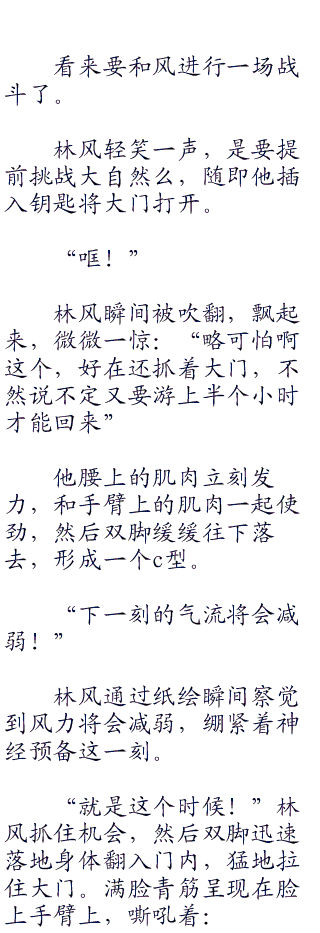 看来要和风进行一场战
斗了。
林风轻笑一声，是要提
前挑战大自然么，随即他插
入钥匙将大门打开。
“哐！”
林风瞬间被吹翻，飘起
来，微微一惊：“略可怕啊
这个，好在还抓着大门，不
然说不定又要游上半个小时
才能回来”
他腰上的肌肉立刻发
力，和手臂上的肌肉一起使
劲，然后双脚缓缓往下落
去，形成一个c型。
“下一刻的气流将会减
弱！”
林风通过纸绘瞬间察觉
到风力将会减弱，绷紧着神
经预备这一刻。
“就是这个时候！”林
风抓住机会，然后双脚迅速
落地身体翻入门内，猛地拉
住大门。满脸青筋呈现在脸
上手臂上，嘶吼着：